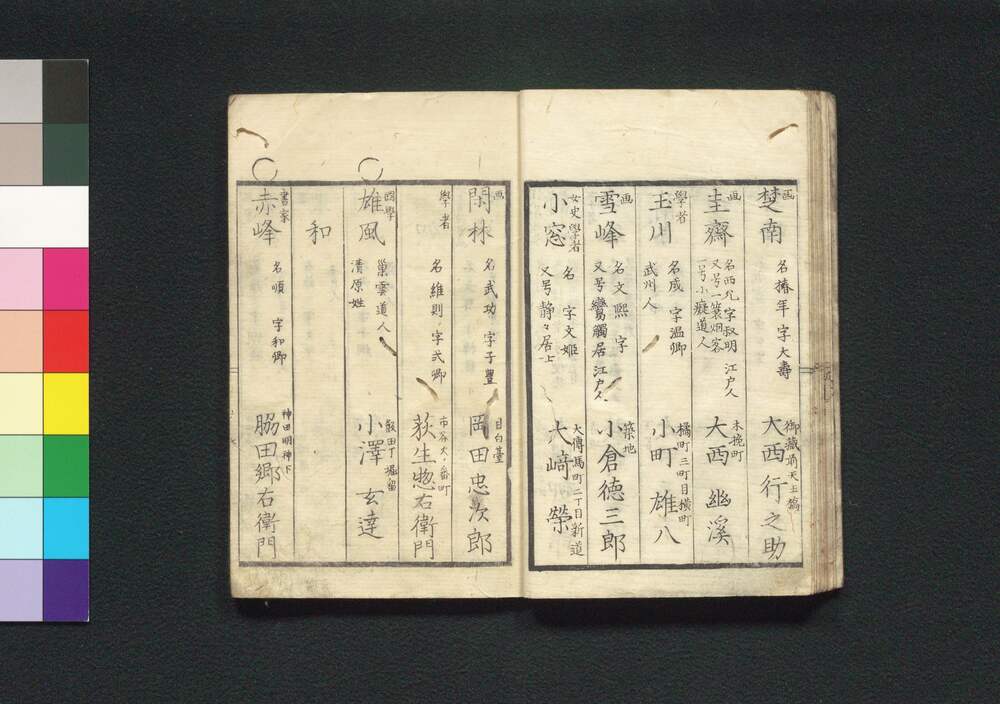 画
楚南
名椿年 字大壽
御藏前天王橋
大西行之助
画
圭齋
名西允 字叔明
又号一簑烟客 江戸人
一号小癡道人
木挽町
大西幽溪
學者
玉川
名成 字温卿
武州人
橘町三町目横町
小町雄八
画
雪峰
名文熙 字
又号鸞觸居 江戸人
築地
小倉徳三郎
女史學者
小窓
名 字文姫
又号静々居士
大傳馬町二丁目新道
大﨑榮
画
閑林
名武功 字子豐
目白臺
岡田忠次郎
學者
名維則 字式卿
市谷大番町
荻生惣右衛門
國學
雄風
巢雲道人
清原姓
堀留
小澤玄達
和
書家
赤峰
名順 字和卿
神田明神下
脇田郷右衛門